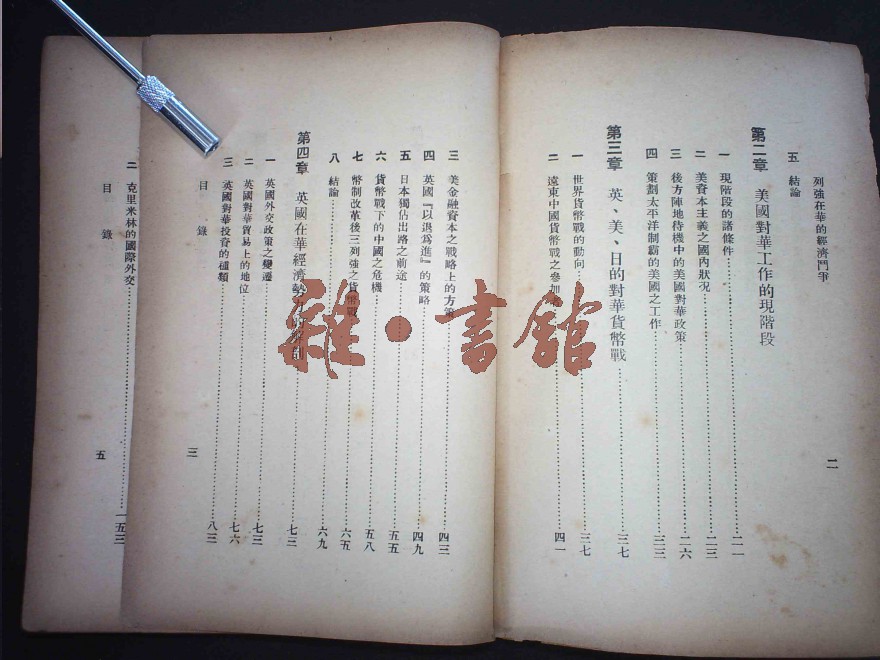 列強在華的經濟鬥爭
二
五 結論
第二章 美國對華工作的現階段
一 現階段的諸條件 二一
二 美資本主義之國內狀况 二三
三 後方陣地待機中的美國對華政策 二六
四 策劃太平洋制霸的美國之工作 三三
第三章 英、美、日的對華貨幣戰 三七
一 世界貨幣戰的動向 三七
二 遠東中國貨幣戰之參加 四一
三 美金融資本之戰略上的方策 四三
四 英國『以退爲進』的策略 四九
五 日本獨佔出路之前途 五五
六 貨幣戰下的中國之危機 五八
七 幣制改革後三列強之貨幣戰 六五
八 結論 六九
第四章 英國在華經濟勢力 七三
一 英國外交政策之變遷 七三
二 英國對華貿易上的地位 七六
三 英國對華投資的種類 八三
目錄
三
二 克里米林的國際外交 一五三
目錄
五
雜·書館